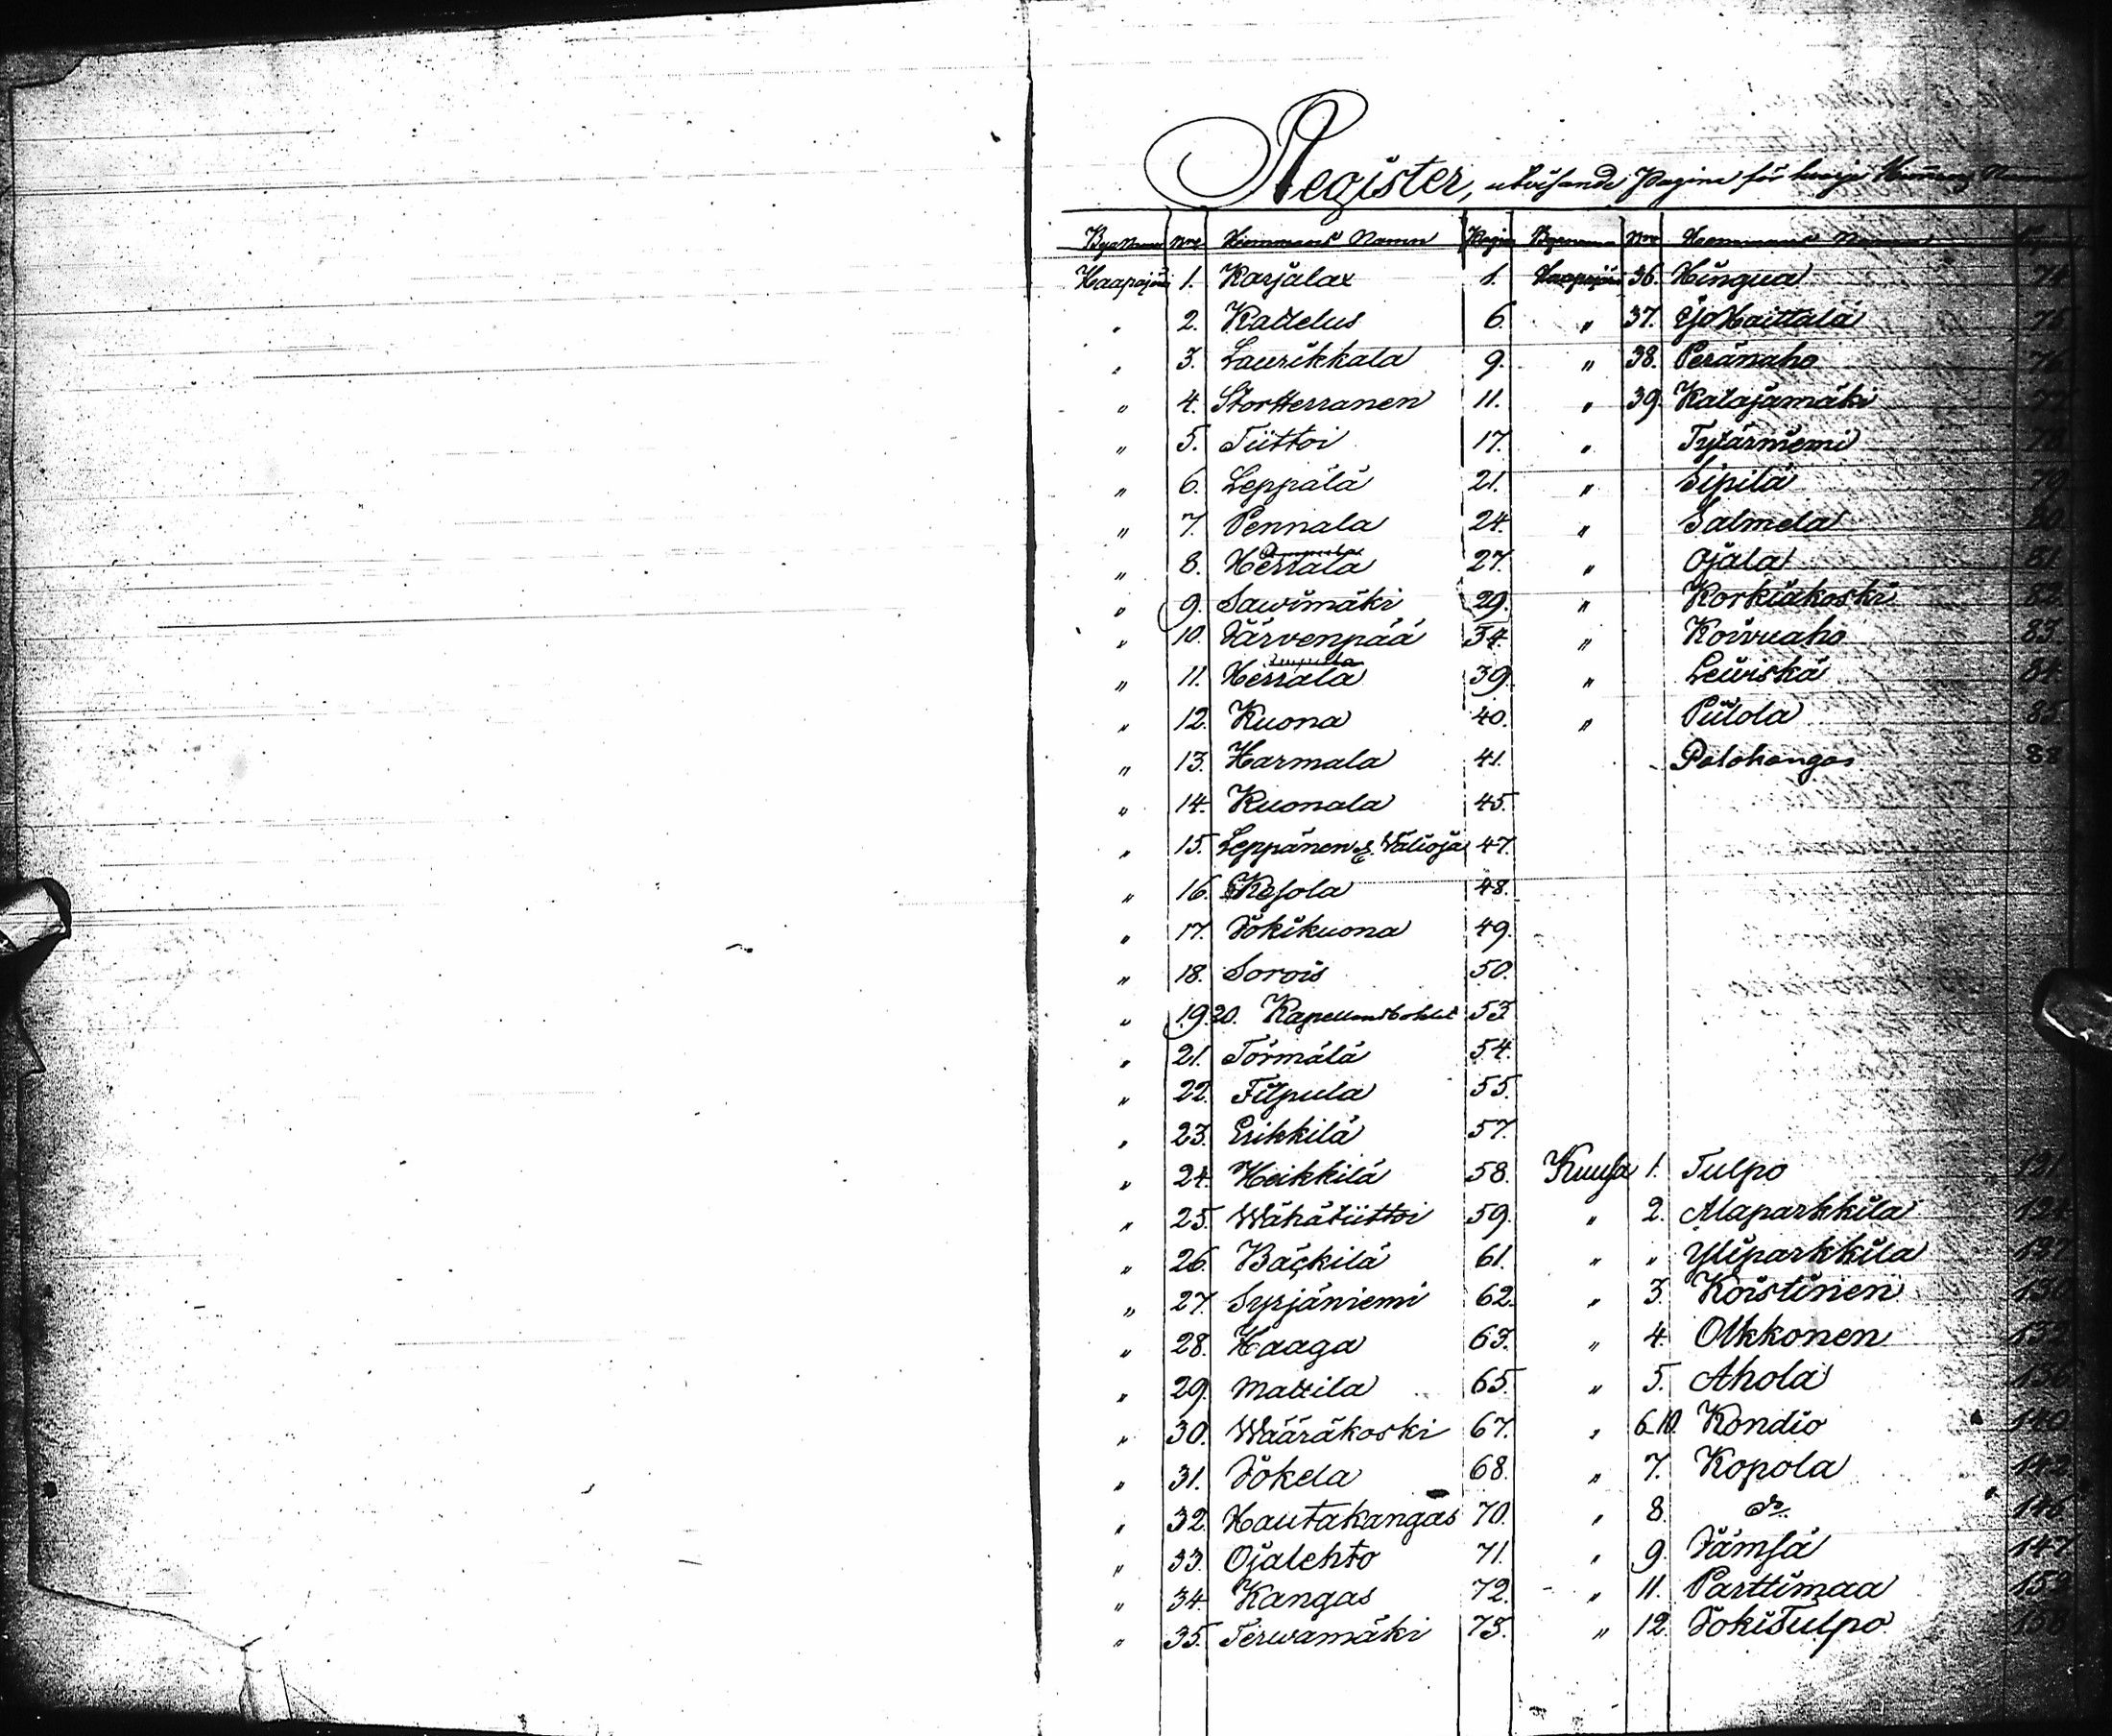 Register, utvisande Pagina för hvarje
Byanamn Nro Hemmans Namn Pagina
Haapajärvi 1. Karjalax 1.
" 2. Kattelus 6.
" 3. Laurikkala 9.
" 4. StorHerranen 11.
" 5. Tiittoi 17.
" 6. Leppälä 21.
" 7. Pennala 24.
" 8. Herrala 27.
" 9. Sawimäki 29.
" 10. Järvenpää 34.
" 11. Herrala 39.
" 12. Kuona 40.
" 13. Harmala 41.
" 14. Kuonala 45.
" 15. Leppänen & Välioja 47.
" 16. Kesola 48.
" 17. Jokikuona 49.
" 18. Sorois 50.
" 19. 20. Kapellansbohlet 53
" 21. Törmälä 54.
" 22. Filpula 55.
" 23. Erikkilä 57.
" 24. Heikkilä 58.
" 25. Wähätiittoi 59.
" 26. Bäckilä 61.
" 27. Syrjäniemi 62.
" 28. Haaga 63.
" 29. Mattila 65.
" 30. Wääräkoski 67.
" 31. Jokela 68.
" 32. Hautakangas 70.
" 33. Ojalehto 71.
" 34. Kangas 72.
" 35. Terwamäki 73.
Byanamn Nro Hemmans Namn
Haapajärvi 36. Hingua
" 37. Haittala 75
" 38. Peränaho 76
" 39. Katajamäki 77
" Tytärniemi 78
" Sipilä 79
" Salmela 80
" Ojala 81
" Korkiakoski 82
" Koivuaho 83.
" Leiviskä 84.
" Piilola 85.
Palokangas 88
Kuusa 1. Tulpo 121
" 2. Alaparkkila 124
" " Yliparkkila 127
" 3. Koistinen 130
" 4. Olkkonen 132
" 5. Ahola 136
" 6.10. Kondio 140
" 7. Kopola 142
" 8. do 146
" 9. Jämsä 147
" 11. Parttimaa 152
" 12. JokiTulpo 158